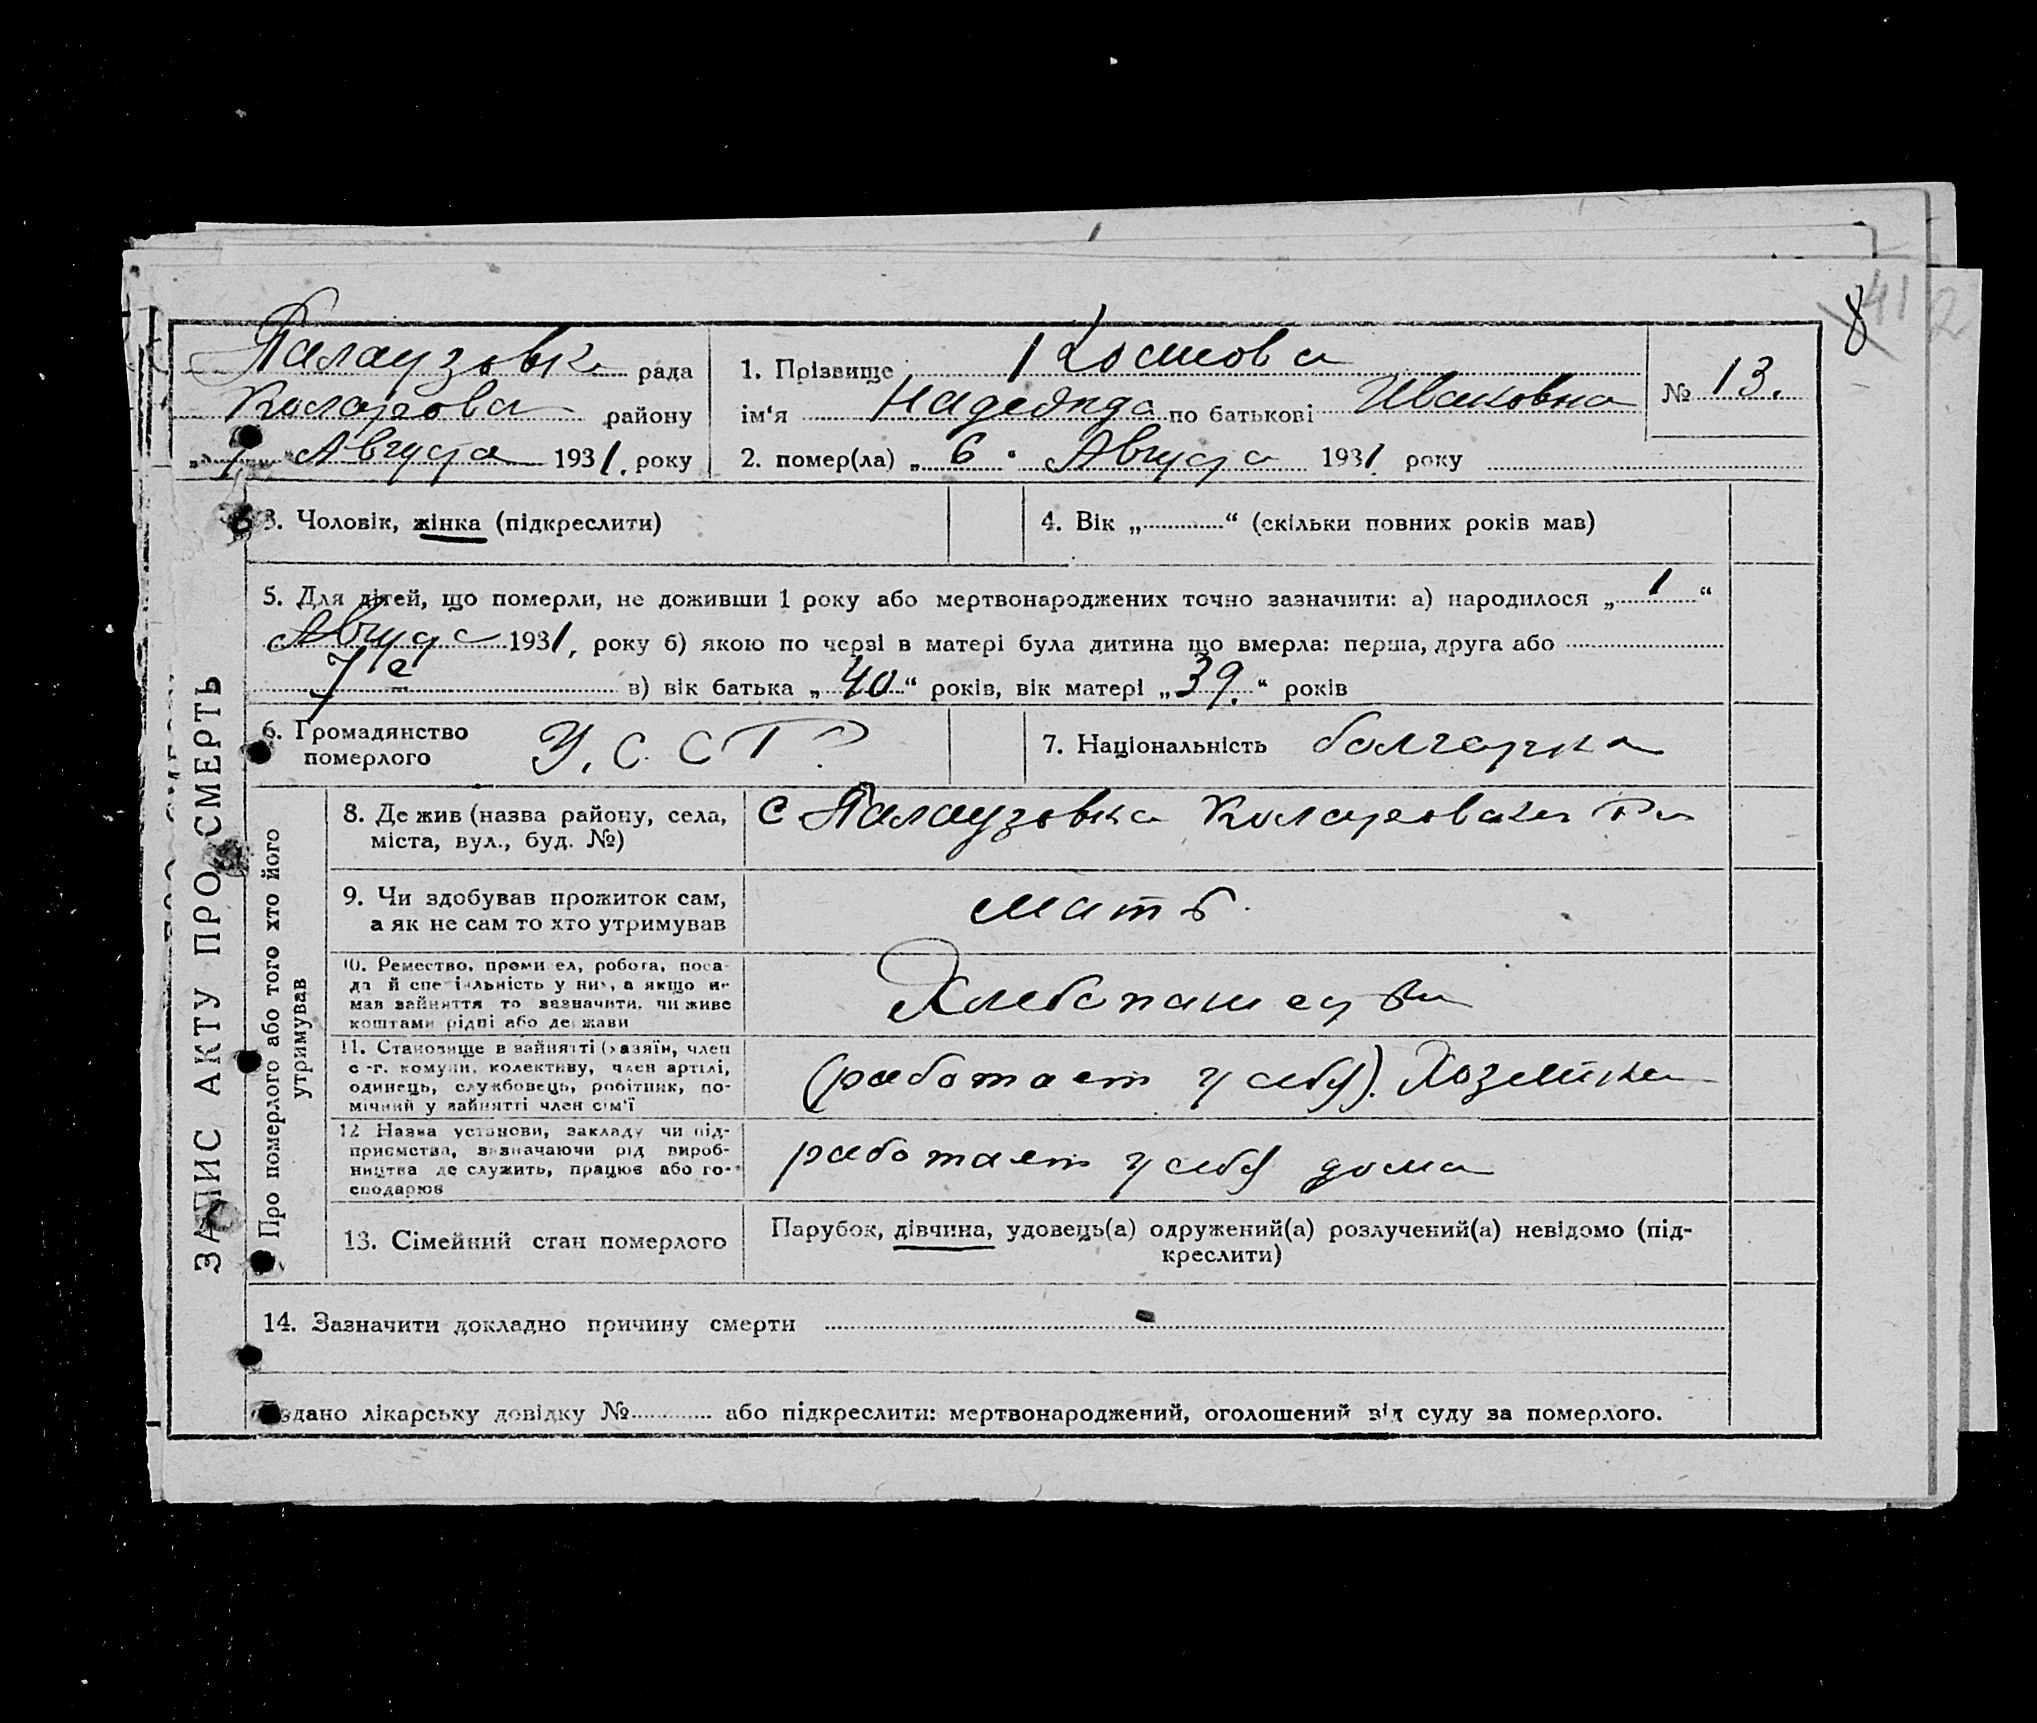 8
41 2
Палаузовка рада
Коларова району
„ 7 “ Августа 1931. року
1. Прізвище Космова
ім‘я Надежда по батькові Ивановна
№ 13.
2. помер(ла) „ 6 “ Августа 1931 року
3. Чоловік, жінка (підкреслити)
4. Вік „ “ (скільки повних років мав)
5. Для дітей, що померли, не доживши 1 року або мертвонароджених точно зазначити: а) народилося „ 1 “
Августа 1931, року б) якою по черзі в матері була дитина що вмерла: перша, друга або
7е в) вік батька „ 40 “ років, вік матері „ 39. “ років
6. Громадянство
померлого
У.С.С.Р.
7. Національність болгарка
ЗАПИС АКТУ ПРО СМЕРТЬ
Про померлого або того хто його
утримував
8. Де жив (назва району, села,
міста, вул., буд. №)
С Палаузовка Коларовски Р-н
9. Чи здобував прожиток сам,
а як не сам то хто утримував
мать.
10. Ремество, промисел, робота, поса-
да й спеціальність у них, а якщо не
мав зайняття то зазначити, чи живе
коштами рідні або держави
Хлебопашество
11. Становище в зайнятті (хазяїн, член
с.-г. комуни, колективу, член артілі,
одинець, службовець, робітник, по-
мічний у зайнятті член сім'ї
(работает у себя). Хозяйка
12 Назва установи, закладу чи під-
приємства, зазначаючи рід вироб-
ництва де служить, працює або го-
сподарює
работает у себя дома
13. Сімейний стан померлого
Парубок, дівчина, удовець(а) одружений(а) розлучений(а) невідомо (під-
креслити)
14. Зазначити докладно причину смерти
Подано лікарську довідку № або підкреслити: мертвонароджений, оголошений від суду за померлого.